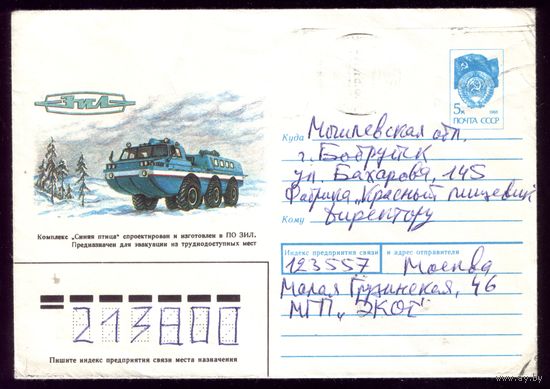 ЗИЛ
5к 1988
ПОЧТА СССР
Комплекс „Синяя птица" спроектирован и изготовлен в ПО ЗИЛ.
Предназначен для эвакуации на труднодоступных мест
213800
Пишите индекс предприятия связи места назначения
Куда Могилевская обл.
г. Бобруйск
ул. Бахарова, 145
Фабрика „Красный пищевик"
Кому директору
Индекс предприятия связи и адрес отправителя
123557 Москва
Малая Грузинская, 46
МГП „ЭКОТ"
www.ay.by